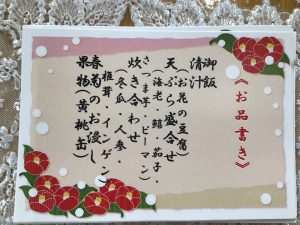 《お品書き》
御飯
清汁
(お花の豆腐)
天ぷら盛合せ
(海老・鱚・茄子・
さつま芋・ピーマン)
炊き合わせ
(冬瓜・人参・
椎茸・インゲン)
春菊のお浸し
果物(黄桃缶)